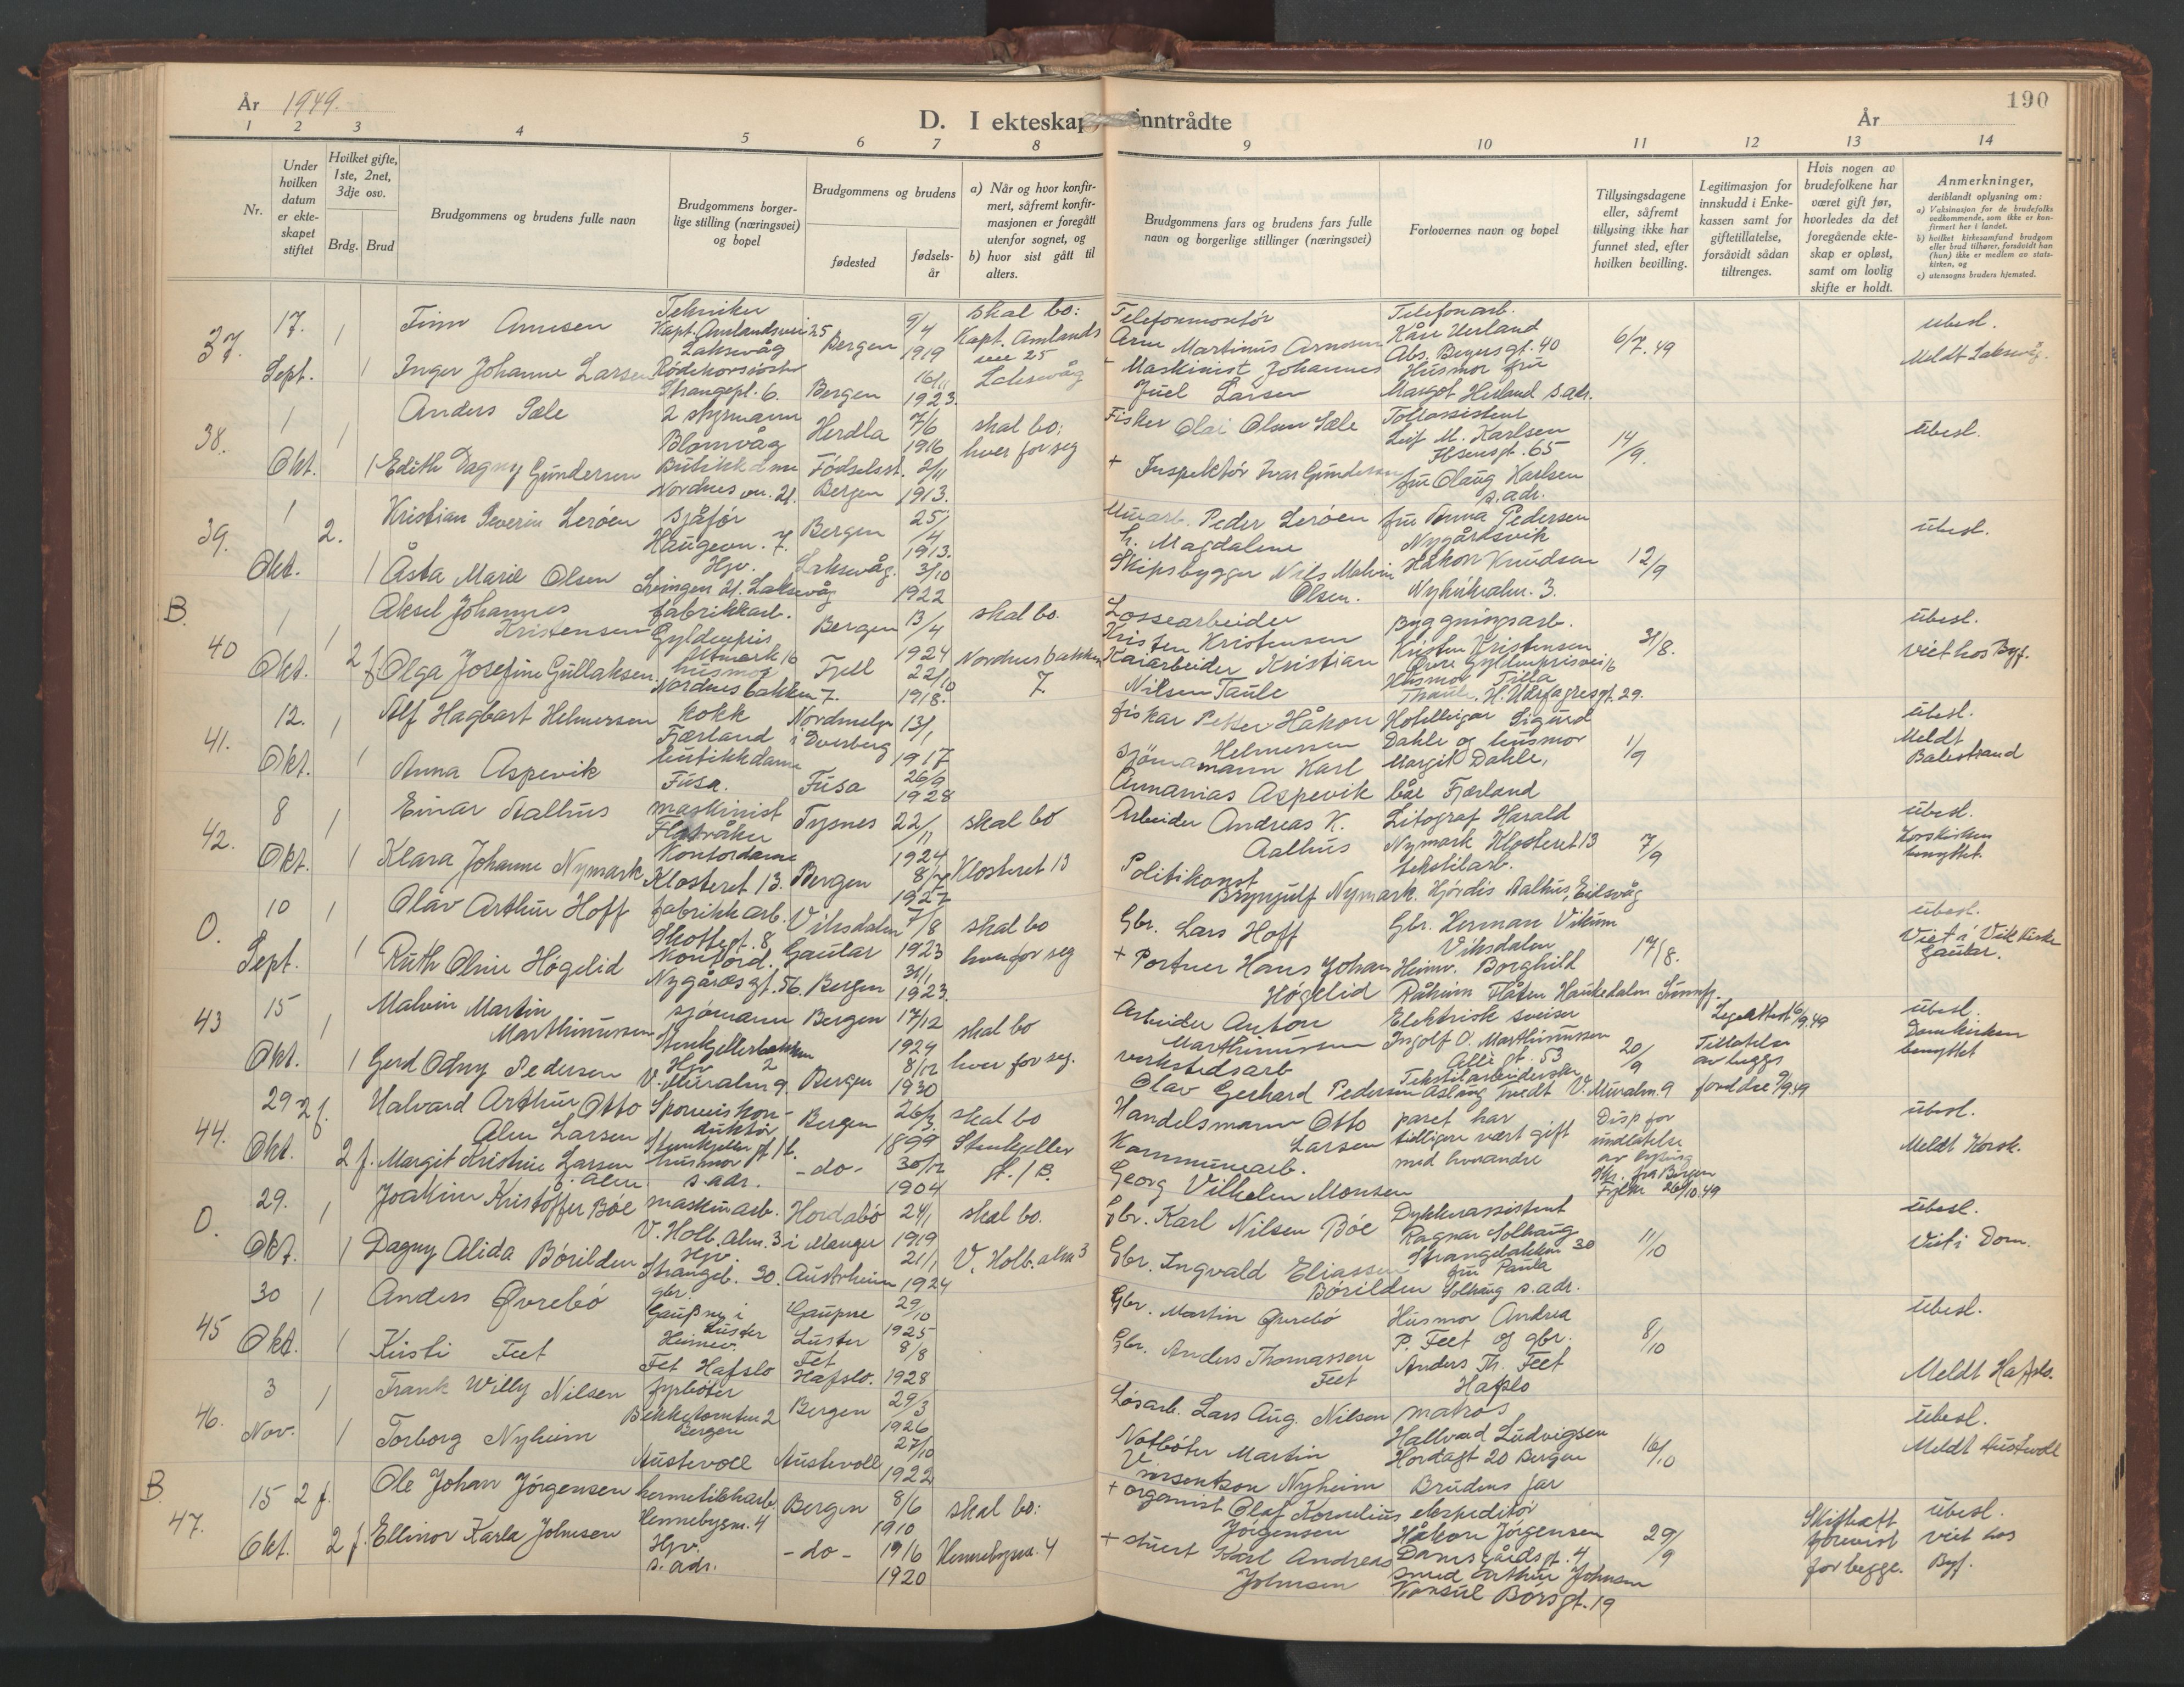 År 1949.
D. I ekteskap inntrådte
År
190
1 2 3 4 5 6 7 8 9 10 11 12 13 14
Nr.
Under hvilken datum er ekteskapet stiftet
Hvilket gifte, 1ste, 2net, 3dje osv.
Brdg. Brud
Brudgommens og brudens fulle navn
Brudgommens borgerlige stilling (næringsvei) og bopel
Brudgommens og brudens
fødested
fødselsår
a) Når og hvor konfirmert, såfremt konfirmasjonen er foregått utenfor sognet, og
b) hvor sist gått til alters.
Brudgommens fars og brudens fars fulle navn og borgerlige stillinger (næringsvei)
Forlovernes navn og bopel
Tillysingsdagene eller, såfremt tillysing ikke har funnet sted, efter hvilken bevilling.
Legitimasjon for innskudd i Enkekassen samt for giftetillatelse, forsåvidt sådan tiltrenges.
Hvis nogen av brudefolkene har været gift før, hvorledes da det foregående ekteskap er opløst, samt om lovlig skifte er holdt.
Anmerkninger, deriblandt oplysning om:
a) Vaksinasjon for de brudefolks vedkommende, som ikke er konfirmert her i landet.
b) hvilket kirkesamfund brudgom eller brud tilhører, forsåvidt han (hun) ikke er medlem av statskirken, og
c) utensogns bruders hjemsted.
37. 17. Sept.
1 Finn Arnesen
Tekniker Kapt. Amlandsvei 25 Laksevåg
Bergen 9/4 1919
skal bo: Kapt. Amlands vei 25 Laksevåg
Telefonmontör Arne Martinus Arnesen
Telefonarb. Kåre Herland Abs. Beyersgt. 40
6/7. 49
ubesl. Meldt Laksevåg.
1 Inger Johanne Larsen
Rödekorssöster Strangepl. 6.
Bergen 16/11 1923.
+ Maskinist Johannes Juel Larsen
Husmor fru Margot Herland s.adr.
38. 1 Okt.
1 Anders Sæle
2 styrmann Blomvåg
Herdla 7/6 1916
skal bo: hver for seg
Fisker Olai Olsen Sæle
Tollassistent Leif M. Karlsen Ibsensgt. 65
14/9.
ubesl.
1 Edith Dagny Gundersen
Butikkdame Nordnesvn. 21.
Födselsst. Bergen 2/11 1913.
+ Inspektör Ivar Gundersen
fru Olaug Karlsen s.adr.
39. 1 Okt.
2. Kristian Severin Leröen
sjåför Haugevn. 7.
Bergen 25/4 1913.
Murarb. Peder Leröen h. Magdalene
fru Anna Pedersen Nygårdsvik
12/9
ubesl.
1 Åsta Marie Olsen
Hjv. Laksevåg
Laksevåg. 3/10 1922
Skipsbygger Nils Malvin Olsen.
Håkon Knudsen
B. 40 1 Okt.
1 Aksel Johannes Kristensen
fabrikkarb. Gyldenpris Utmark 16
Bergen 13/4 1924
skal bo. Nordnesbakken 7
Lossearbeider Kristen Kristensen
Byggningsarb. Kristen Kristensen Övre Gyldenprisvei 16
31/8.
ubesl. viet hos Byf.
2 f. Olga Josefine Gullaksen
husmor Nordnesbakken 7.
Fjell 22/10 1918.
Kaiarbeider Kristian Nilsen Taule
Husmor Tilla Thaule. H. Hårfagresgt. 29.
41. 12. Okt.
1 Alf Hagbart Helmersen
kokk Fjærland
Nordmela i Dverberg 13/1 1917
fisker Petter Håkon Helmersen
Hotelleigar Sigurd Dahle og husmor Margit Dahle, båe Fjærland
1/9
ubesl. Meldt Balestrand
1 Anna Aspevik
butikkdame Fusa.
Fusa 26/9 1928
sjömann Karl Annanias Aspevik
42. 8 Okt.
1 Einar Aalhus
maskinist Flatråker
Tysnes 22/11 1924
skal bo Klosteret 13
Arbeider Andreas K. Aalhus
Litograf Harald Nymark Klosteret 13
7/9
ubesl. Korskirken benyttet.
1 Klara Johanne Nymark
Kontordame Klosteret 13.
Bergen 8/7 1927
Politikonst. Brynjulf Nymark.
tekstilarb. Hjördis Aalhus, Eilsvåg
O. 10 Sept.
1 Olav Arthur Hoff
fabrikkarb. Skottegt. 8.
Viksdalen Gaular 7/8 1923
skal bo hver for seg
Gbr. Lars Hoff
Gbr. Herman Vikum Viksdalen
17/8.
ubesl. Viet i Vik kirke Gaular.
1 Ruth Oline Högelid
Kontord. Nygårdsgt. 56.
Bergen 31/1 1923.
+ Portner Hans Johan Högelid
Heimv. Borghild Råheim Flåten Haukedalen Sunnfj.
43 15 Okt.
1 Malvin Martin Marthinussen
sjömann Stenkjellerbakken 2
Bergen 17/12 1924
skal bo hver for seg.
Arbeider Anton Marthinussen
Elektrisk sveiser Ingolf O. Marthinussen Allégt. 53
20/9
Tillatelse av begges
ubesl. Domkirken benyttet
1 Gerd Odny Pedersen
Hjv V. Muralm. 9.
Bergen 8/12 1930
verkstedsarb Olav Gerhard Pedersen
Tekstilarbeiderske Aslaug Tvedt V. Muralm. 9
44. 29 Okt.
2 f. Halvard Arthur Otto Alm Larsen
Sporveiskonduktör Stenkjellergt 1b.
Bergen 26/3 1899
skal bo Stenkjeller gt. 1 B.
Handelsmann Otto Larsen
paret har tidligere vært gift med hverandre
Disp for undlatelse av lysing Skr. fra Bergen Fylke 26/10.49
ubesl. Meldt Korsk.
2 f. Margit Kristine Larsen f. Alm
husmor s.adr.
-do- 30/12 1904
Kommunearb. Georg Vilhelm Monsen
O. 29. Okt.
1 Joakim Kristoffer Böe
maskinarb. V. Holb. Alm. 3
Hordabö i Manger 24/1 1919
skal bo. V. Holb. alm 3
Gbr. Karl Nilsen Böe
Dykkerassistent Ragnar Solhaug Strangebakken 30
11/10
ubesl. Viet i Dom.
1 Dagny Alida Börilden
Hjv. Strangeb. 30.
Austrheim 21/1 1924
Gbr. Ingvald Eliassen Börilden
fru Paula Solhaug s.adr.
45 30 Okt.
1 Anders Övrebö
gbr. Gaupne i Luster
Gaupne Luster 29/10 1925
Gbr. Martin Övrebö
Husmor Andrea P. Feet og gbr. Anders Th. Feet Hafslo
8/10
ubesl. Meldt Hafslo.
1 Kirsti Feet
Heimev. Fet Hafslo
Fet Hafslo. 8/8 1928
Gbr. Anders Thomassen Feet
46. 3 Nov.
1 Frank Willy Nilsen
fyrböter Bekketomten 2 Bergen
Bergen 29/3 1926
Lösarb. Lars Aug. Nilsen
matros Hallvard Ludvigsen Hordagt 20 Bergen
16/10
ubesl. Meldt Austevoll
1 Torborg Nyheim
Austevoll
Austevoll 27/10 1922
Notböter Martin Nyheim
Brudens far
B. 47. 15 Okt.
2 f. Ole Johan Jörgensen
hermetikkarb. Hennebysm. 4
Bergen 8/6 1910
skal bo: Hennebysm. 4
+ organist Olaf Kornelius Jörgensen
ekspeditör Håkon Jörgensen Damsgårdsgt. 4
29/9
Skifteatt forevist for begge.
ubesl. viet hos Byf.
2 f. Ellinor Karla Johnsen
Hjv. s.adr.
-do- 19/6 1920
+ stuert Karl Andreas Johnsen
smed Arthur Johnsen Konsul Börsgt. 19